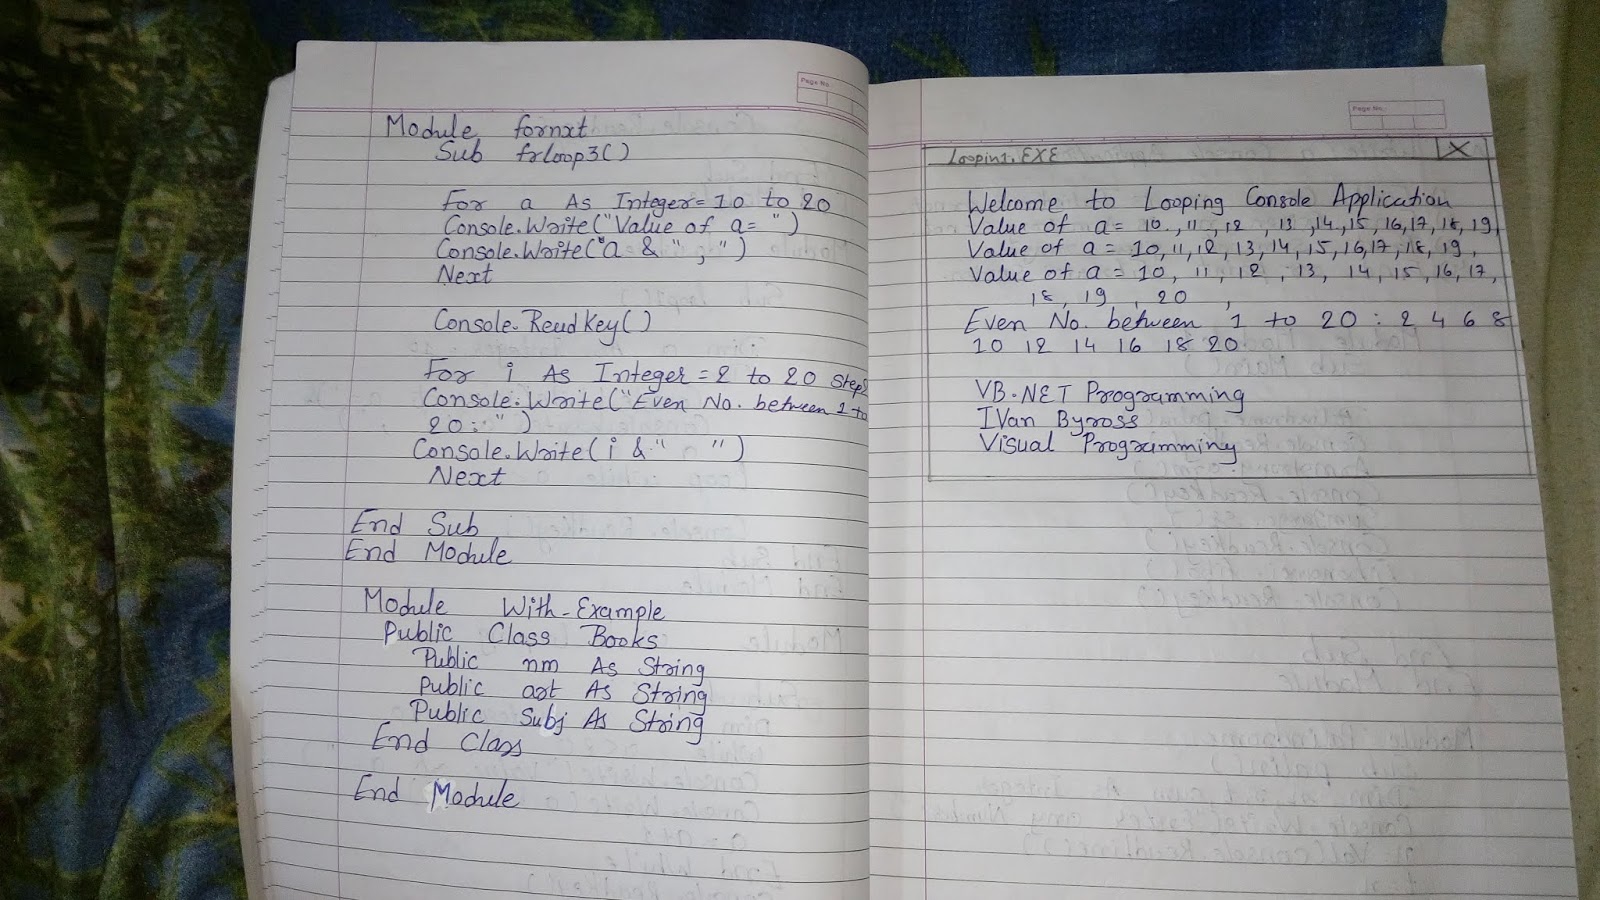 Page No
Module fornxt
Sub frloop3()
For a As Integer = 10 to 20
Console.Write("Value of a= ")
Console.Write("a & " , ")
Next
Console.ReadKey()
For i As Integer = 2 to 20 Step2
Console.Write("Even No. between 1 to
20: ")
Console.Write(i & " ")
Next
End Sub
End Module
Module With-Example
Public Class Books
Public nm As String
Public art As String
Public Subj As String
End Class
End Module
Page No.
Loopin1.EXE X
Welcome to Looping Console Application
Value of a= 10, 11, 12, 13, 14, 15, 16, 17, 18, 19,
Value of a = 10, 11, 12, 13, 14, 15, 16, 17, 18, 19,
Value of a = 10, 11, 12, 13, 14, 15, 16, 17,
18, 19, 20,
Even No. between 1 to 20 : 2 4 6 8
10 12 14 16 18 20
VB.NET Programming
IVan Byross
Visual Programming